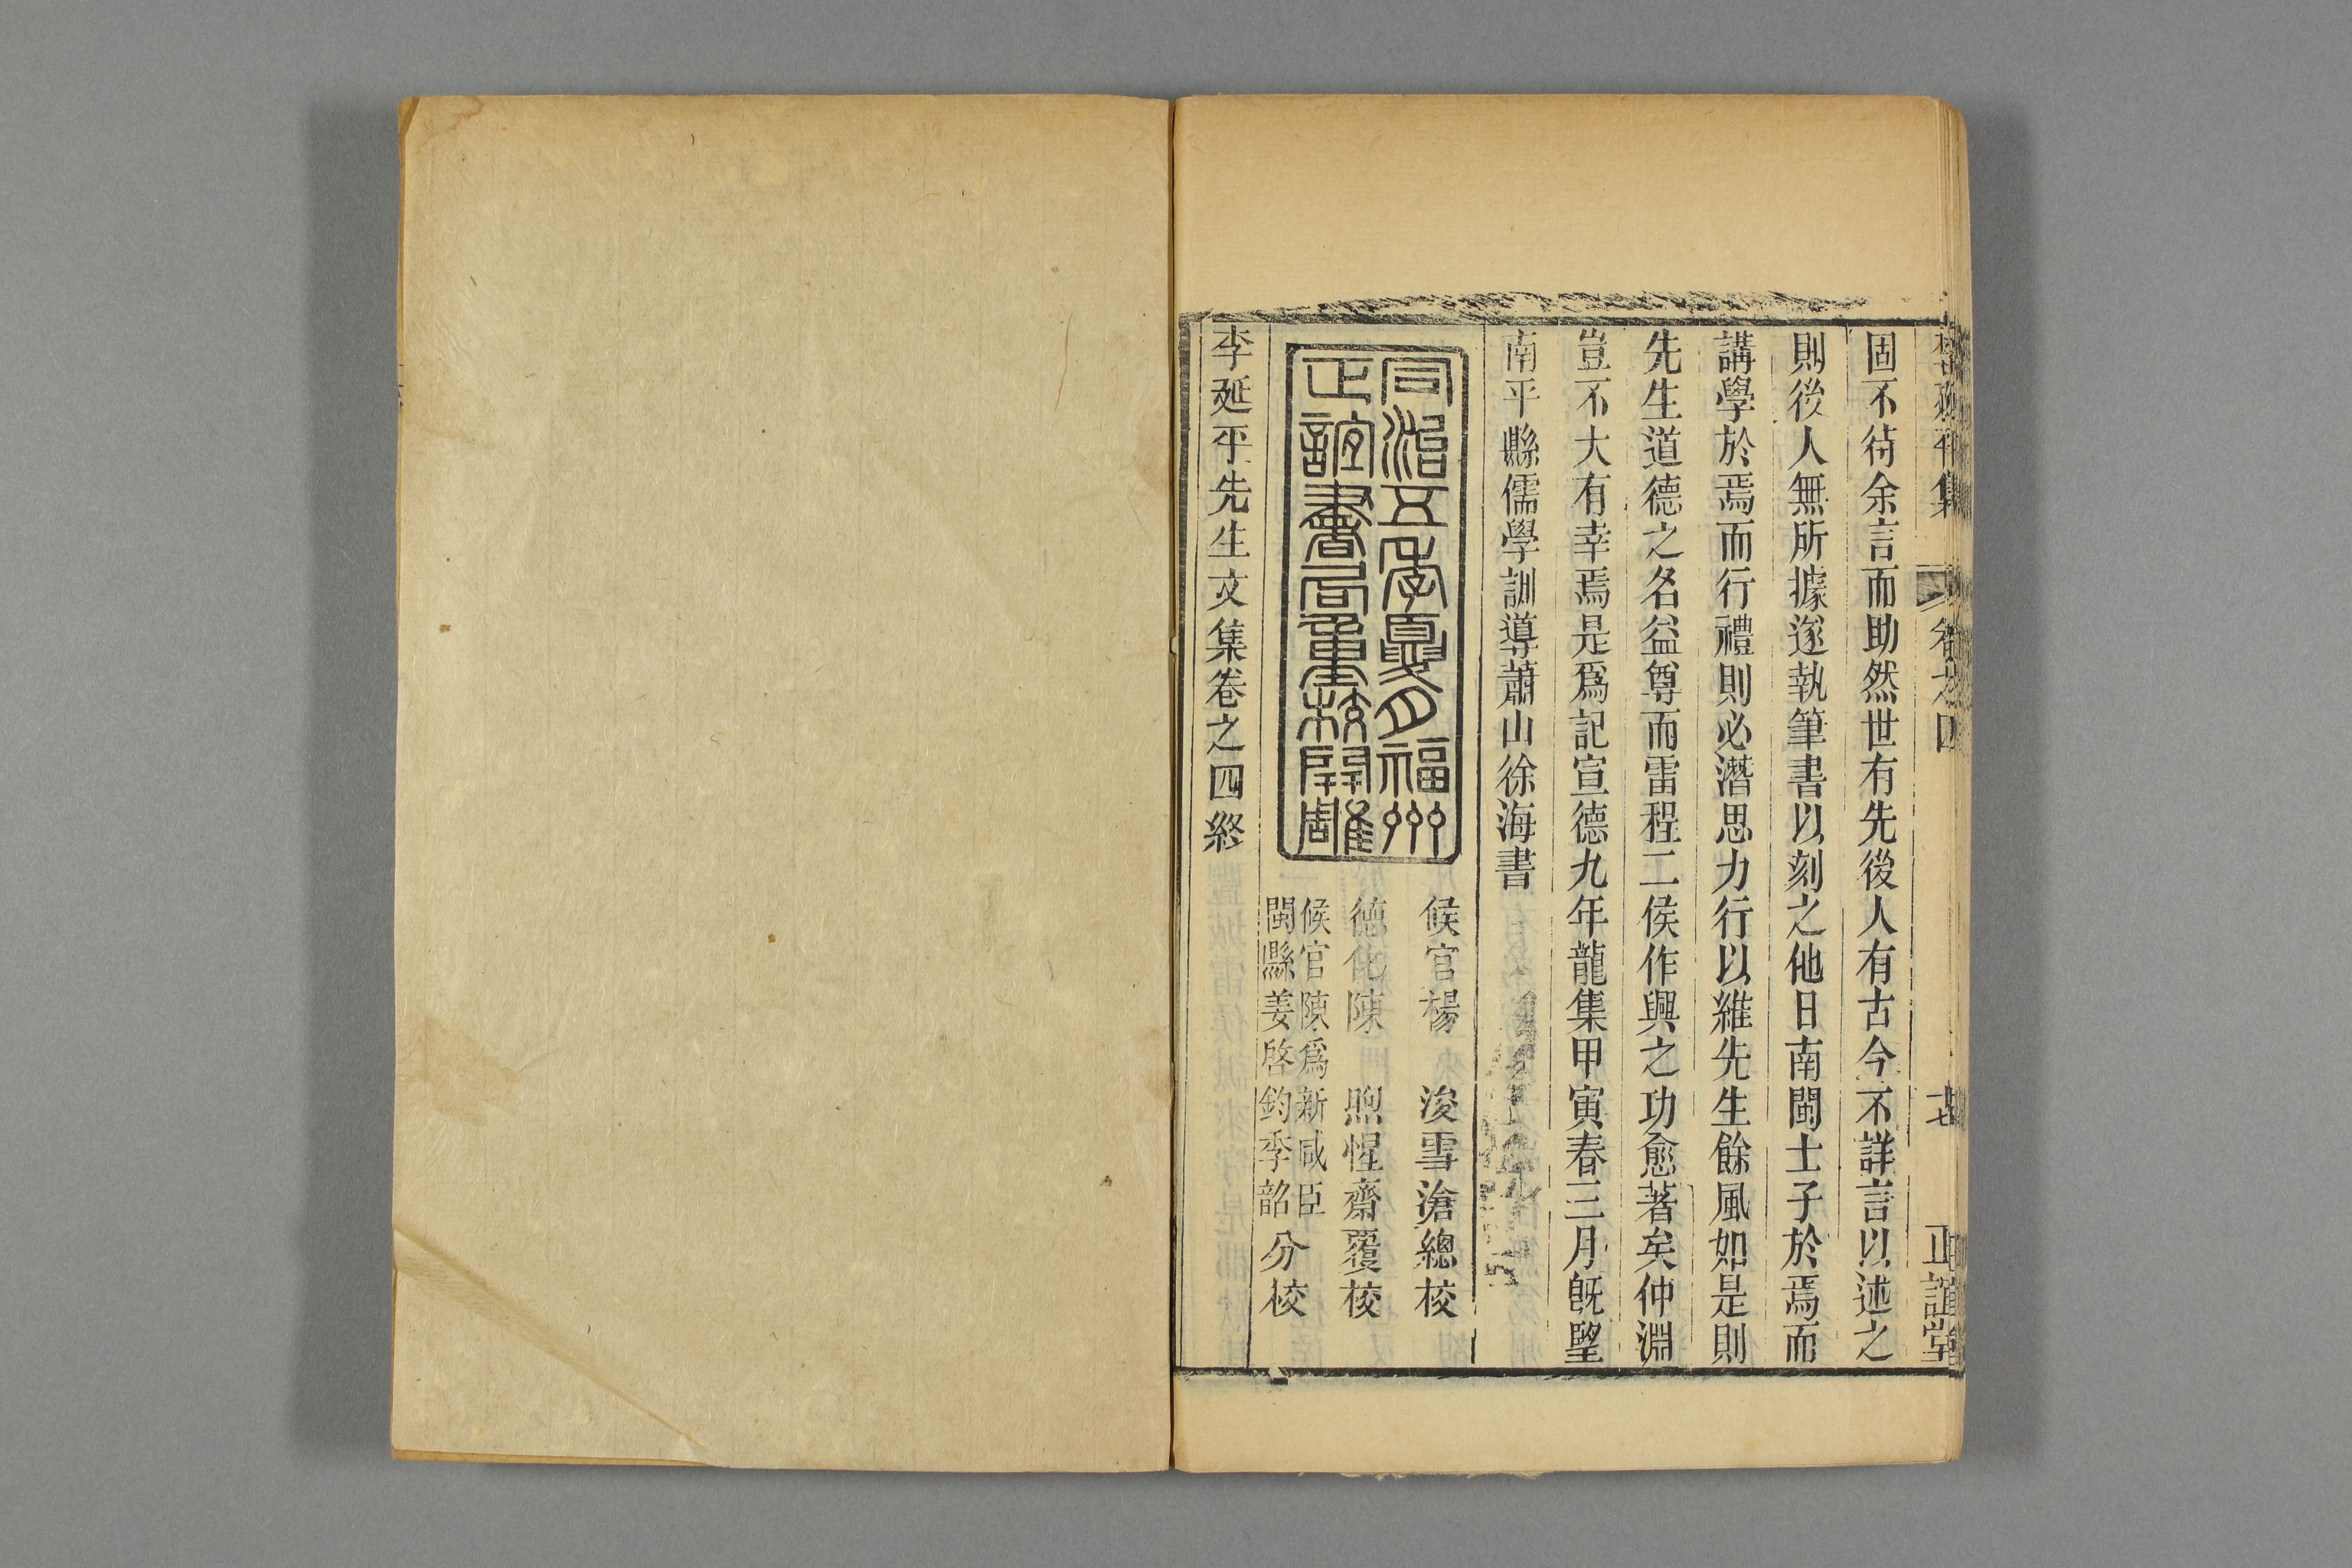 卷之四
正誼堂
固不待余言而助然世有先後人有古今不詳言以述之
則後人無所據遂執筆書以刻之他日南閩士子於焉而
講學於焉而行禮則必潛思力行以維先生餘風如是則
先生道德之名益尊而雷程二侯作興之功愈著矣仲淵
豈不大有幸焉是爲記宣德九年龍集甲寅春三月旣朢
南平縣儒學訓導蕭山徐海書
同治五年夏月福州
正誼書局重校開雕
候官楊 浚雪滄總校
德化陳 煦惺齋覆校
候官陳爲新咸臣
閩縣姜啓釣季韶
分校
李延平先生文集卷之四終